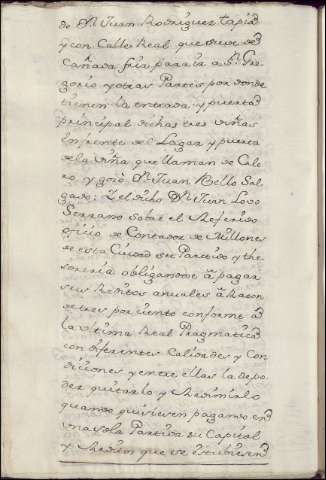 de Dn. Juan Rodriguez tapia
y con Calle Real que sube de
Cañada fria para la a Sn. Gre-
gorio y otras Partes por donde
tienen la entrada, y puerta
principal dichas tres viñas
enfrente del Lagar y puerta
de la Viña que llaman de Cale-
ro y gozó Dn. Juan Rello Sal-
gado: I el dicho Dn. Juan Lovo
Serrano sobre el Referido
oficio de Contador de Millones
de esta Ciudad su Partido y the-
soreria obligandose à pagar
sus Reditos anuales à Razon
de tres por ciento conforme à
la ultima Real Pragmatica
con diferentes Calidades y Con-
diciones y entre ellas la de po-
der quitarlo y Redimirlo
quando quisiesen pagando en
una sola Partida su Capital
y Reditos que se estubiesen